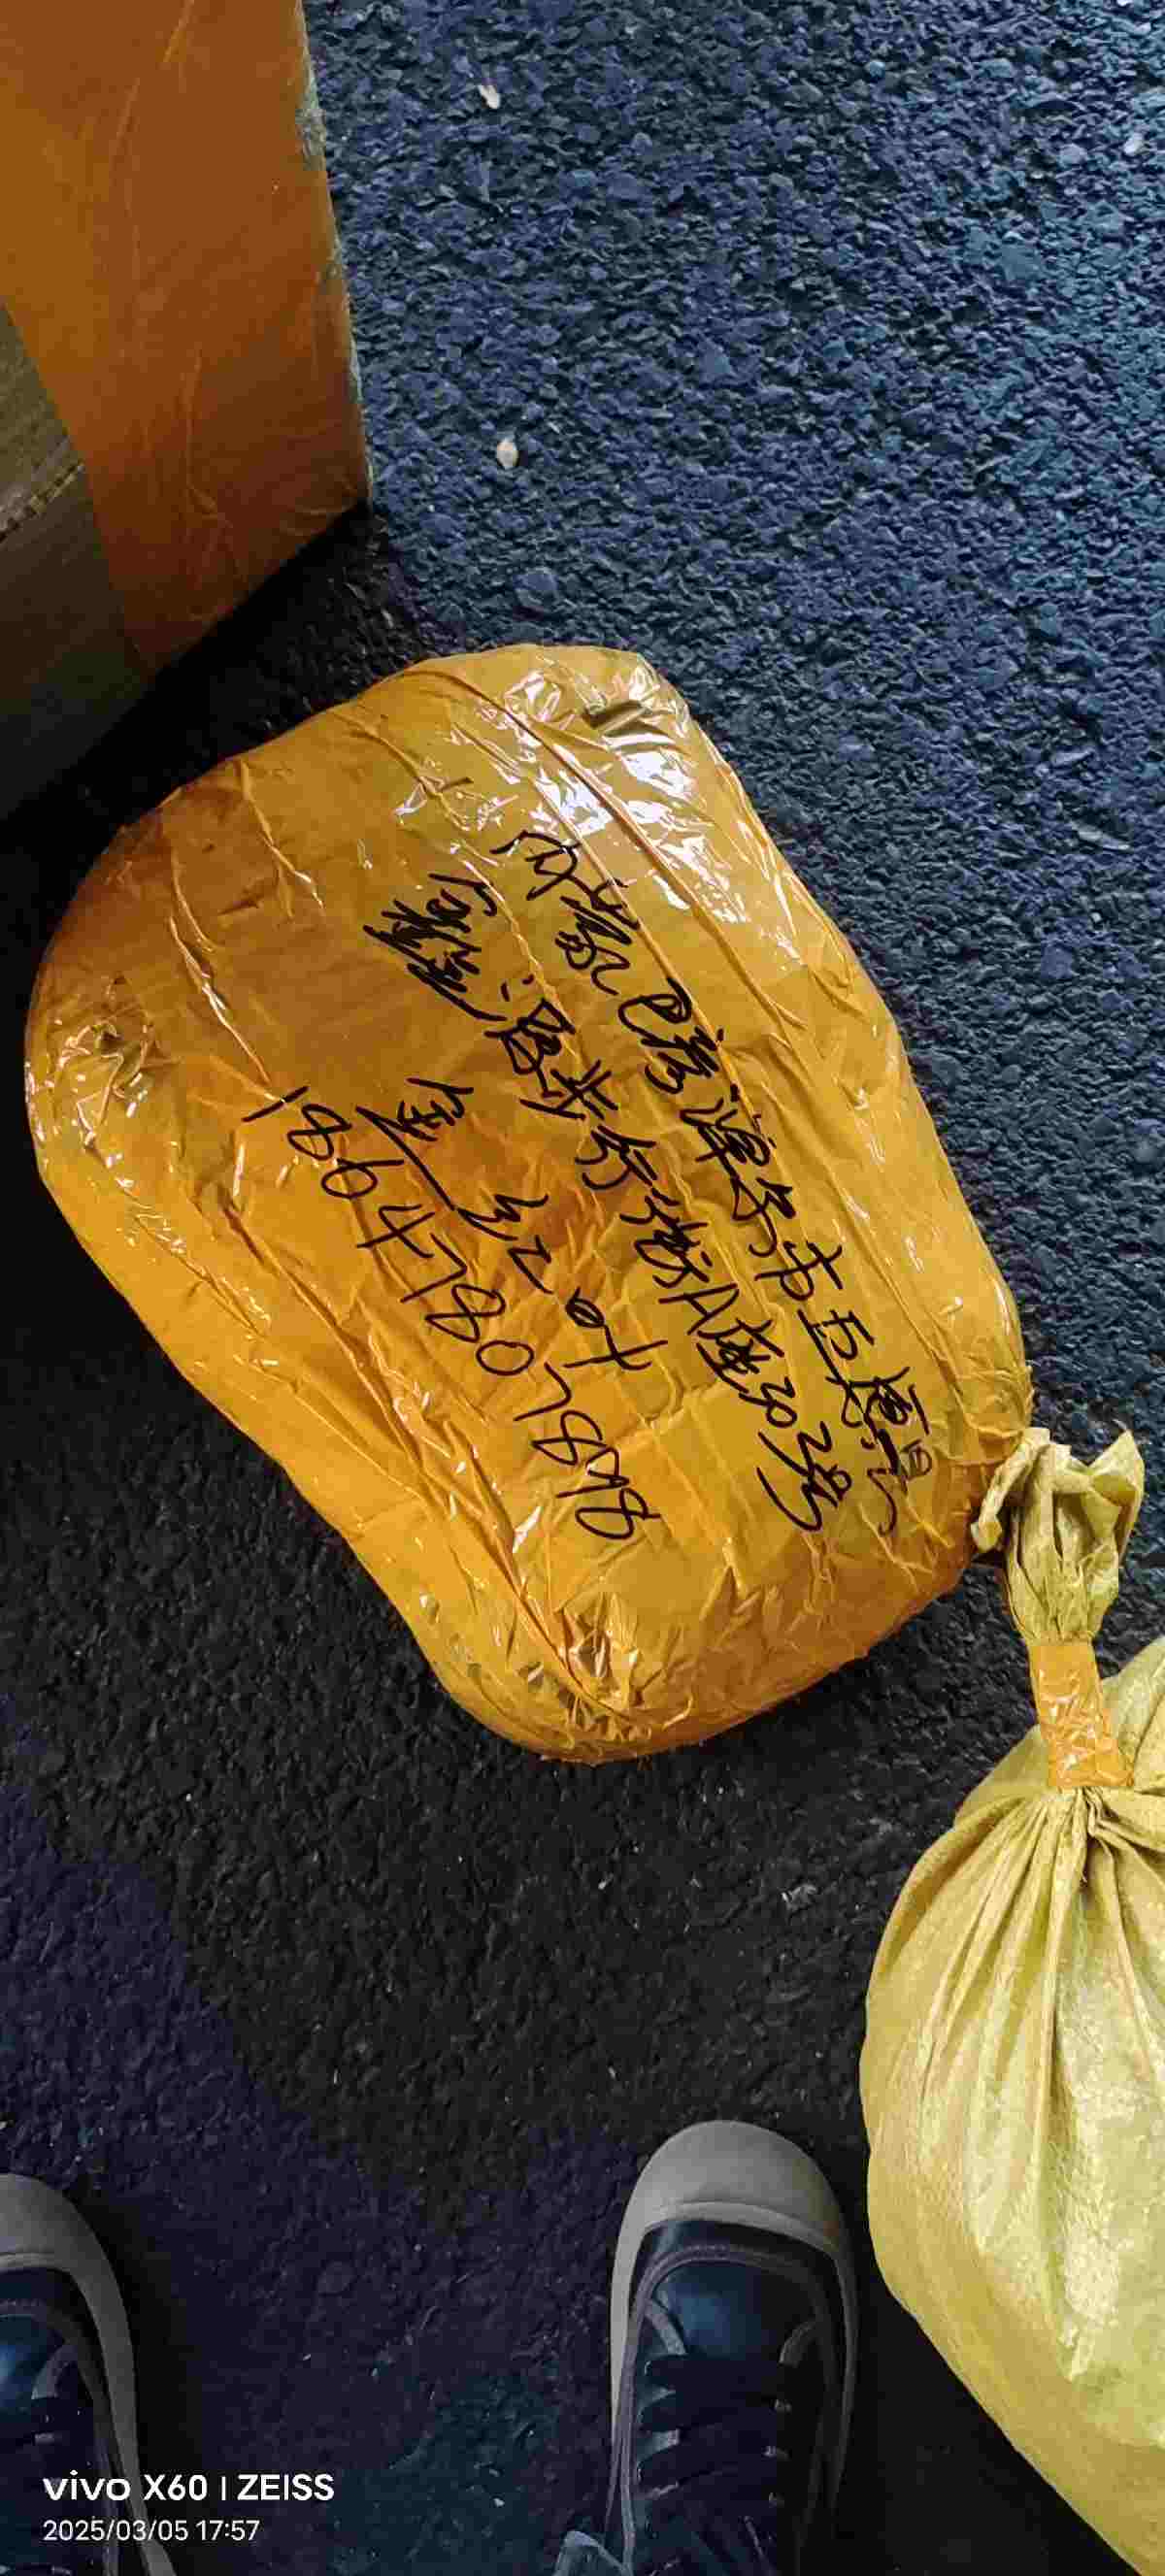 内蒙巴彦淖尔市五原县
隆兴昌步行街A座303号
红叶
18647807898
vivo X60 | ZEISS
2025/03/05 17:57